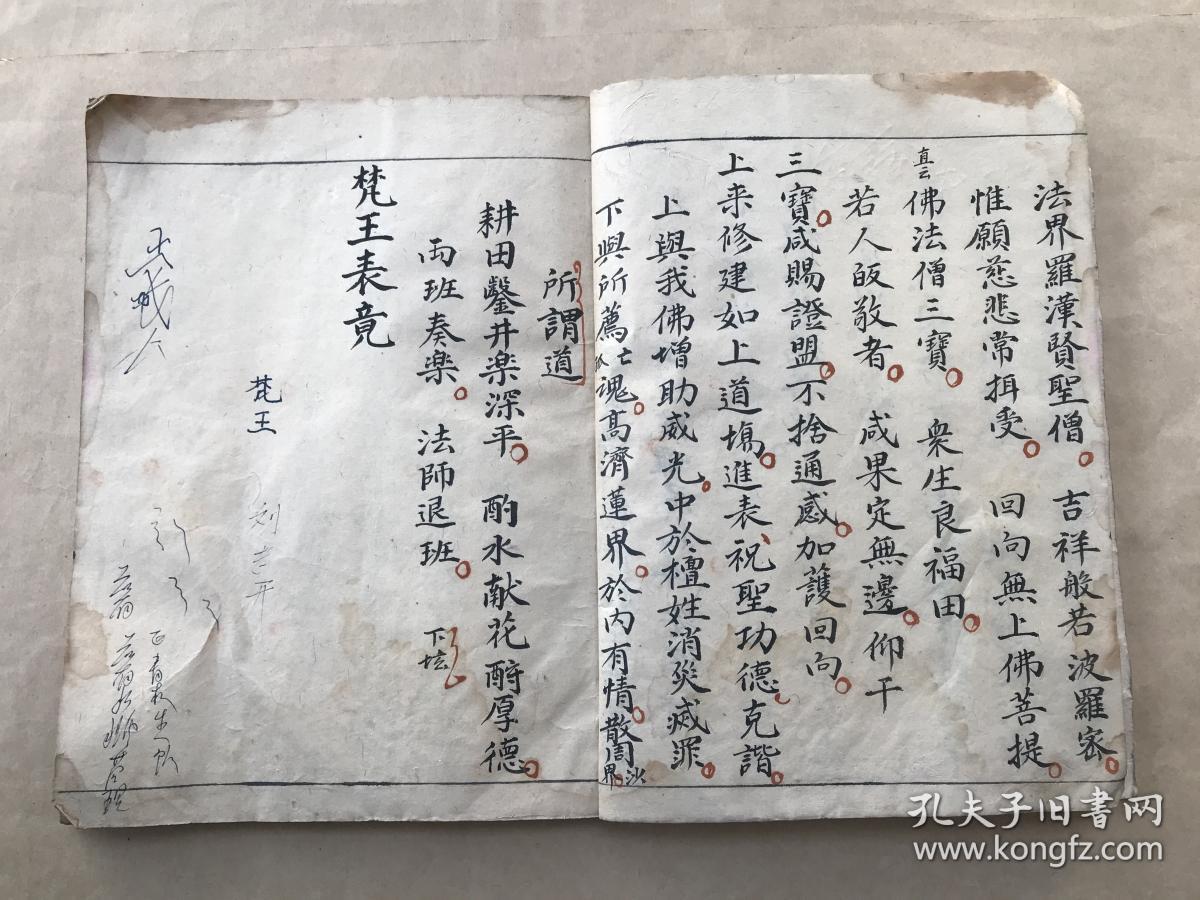 法界羅漢賢聖僧。吉祥般若波羅宻。
惟願慈悲常揖受。回向無上佛菩提。
直云
佛法僧三寶。衆生良福田。
若人皈敬者。咸果定無邊。仰干
三寶。咸賜證盟。不捨通感。加護回向。
上来修建如上道塲。進表、祝聖功德。克諧
上與我佛增助威光。中於檀姓消災滅罪。
下與所薦亡魂。高濟蓮界。於内有情。散周沙界。
所謂道
耕田鑿井楽深平。酌水献花酧厚德。
兩班奏楽。法師退班。下坛
梵王表竟
梵王
刘
孔夫子旧书网
www.kongfz.com